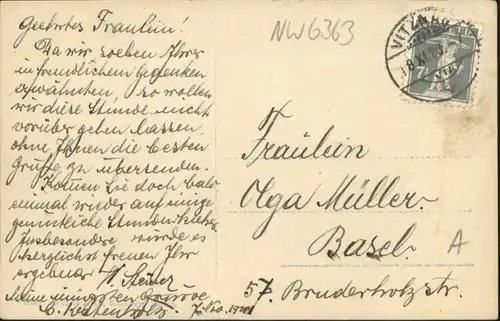 Geehrtes Fräulein!
Da wir soeben Ihrer
in freundlichem Gedenken
erwähnten, so wollen
wir diese Stunde nicht
vorüber gehen lassen,
ohne Ihnen die besten
Grüße zu übersenden.
Kommen Sie doch bald
einmal wieder auf einige
gemütliche Stunden
Insbesondere würde es
herzlichst freuen Ihr
ergebener W. Steiner
C. Kestenholz 7. Nov. 1911
NW6363
VITZNAU
Fräulein
Olga Müller.
Basel.
57. Bruderholzstr.
A